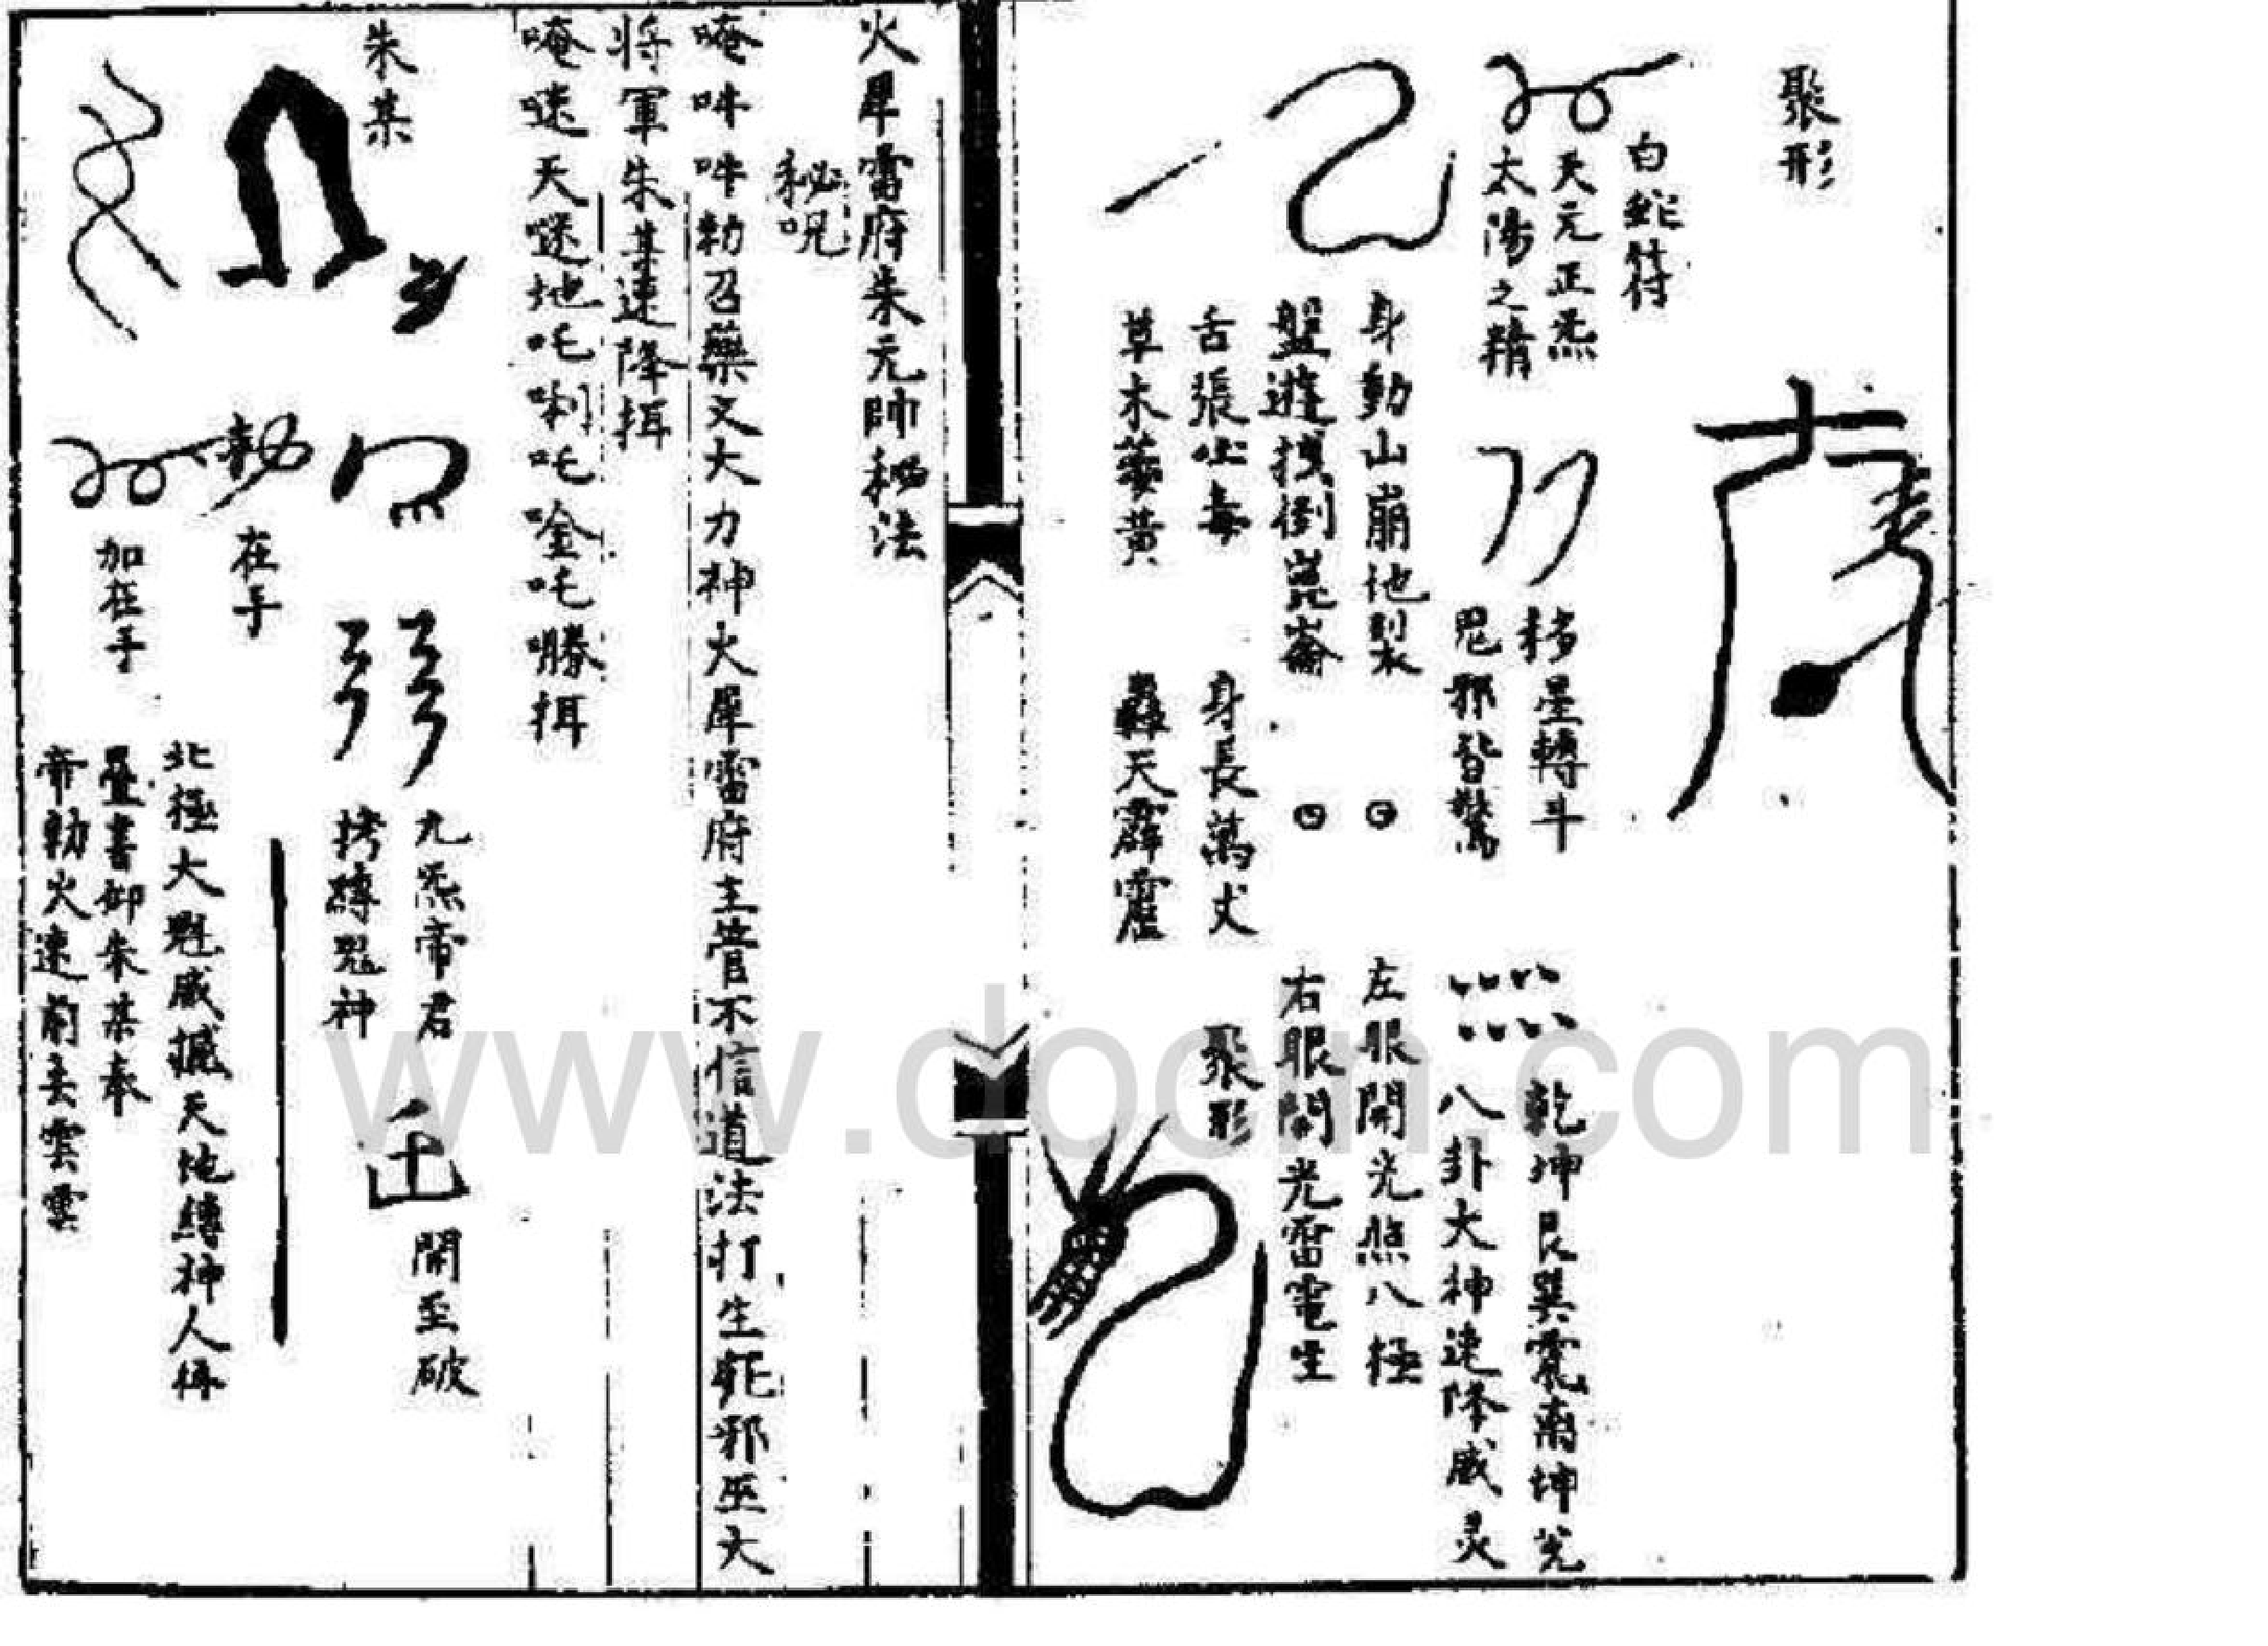 聚形
白蛇符
天元正炁
太陽之精
移星轉斗
鬼邪皆驚
乾坤艮巽震离坤兑
八卦大神速降威灵
身動山崩地裂
盤遊撞倒崑崙
左眼開光照八極
右眼開光雷電生
舌張吐毒
草木萎黃
身長萬丈
轟天霹靂
聚形
火犀雷府朱元帥秘法
秘咒
唵吽吽勅召藥叉大力神火犀雷府主管不信道法打生死邪巫大
將軍朱某速降揖
唵嚏天嚏地吒唎吒唫吒㘉揖
朱某
九炁帝君
拷縛鬼神
開至破
勅
在手
加在手
北極大魁威撼天地縛神人
疊書卸朱某奉
帝勅火速前去雲雲
www.docin.com